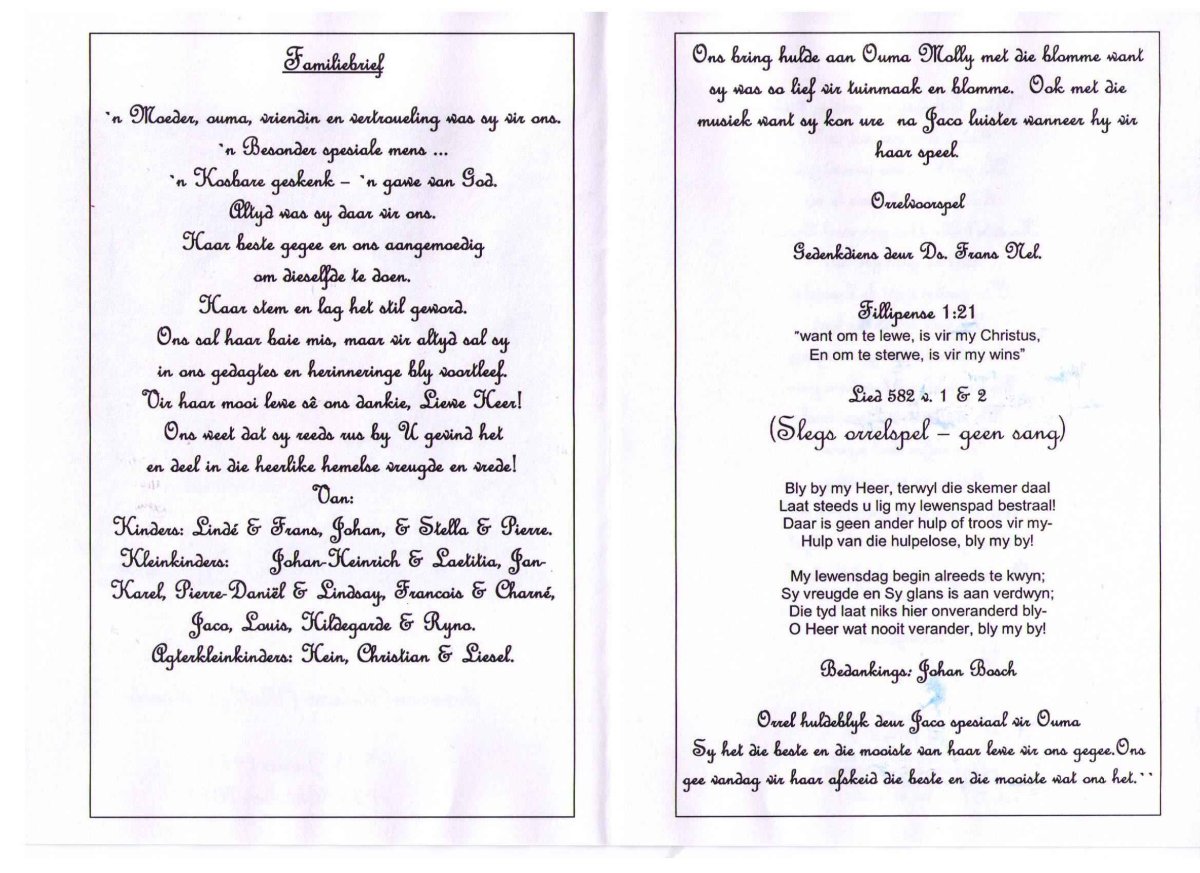 Familiebrief
`n Moeder, ouma, vriendin en vertroueling was sy vir ons.
`n Besonder spesiale mens ...
`n Kosbare geskenk – `n gawe van God.
Altyd was sy daar vir ons.
Haar beste gegee en ons aangemoedig
om dieselfde te doen.
Haar stem en lag het stil geword.
Ons sal haar baie mis, maar vir altyd sal sy
in ons gedagtes en herinneringe bly voortleef.
Vir haar mooi lewe sê ons dankie, Liewe Heer!
Ons weet dat sy reeds rus by U gevind het
en deel in die heerlike hemelse vreugde en vrede!
Van:
Kinders: Lindé & Frans, Johan, & Stella & Pierre.
Kleinkinders: Johan-Heinrich & Laetitia, Jan-
Karel, Pierre-Daniël & Lindsay, Francois & Charné,
Jaco, Louis, Hildegarde & Ryno.
Agterkleinkinders: Hein, Christian & Liesel.
Ons bring hulde aan Ouma Molly met die blomme want
sy was so lief vir tuinmaak en blomme. Ook met die
musiek want sy kon ure na Jaco luister wanneer hy vir
haar speel.
Orrelvoorspel
Gedenkdiens deur Ds. Frans Nel.
Fillipense 1:21
"want om te lewe, is vir my Christus,
En om te sterwe, is vir my wins"
Lied 582 v. 1 & 2
(Slegs orrelspel – geen sang)
Bly by my Heer, terwyl die skemer daal
Laat steeds u lig my lewenspad bestraal!
Daar is geen ander hulp of troos vir my-
Hulp van die hulpelose, bly my by!
My lewensdag begin alreeds te kwyn;
Sy vreugde en Sy glans is aan verdwyn;
Die tyd laat niks hier onveranderd bly-
O Heer wat nooit verander, bly my by!
Bedankings: Johan Bosch
Orrel huldeblyk deur Jaco spesiaal vir Ouma
Sy het die beste en die mooiste van haar lewe vir ons gegee.Ons
gee vandag vir haar afskeid die beste en die mooiste wat ons het.``